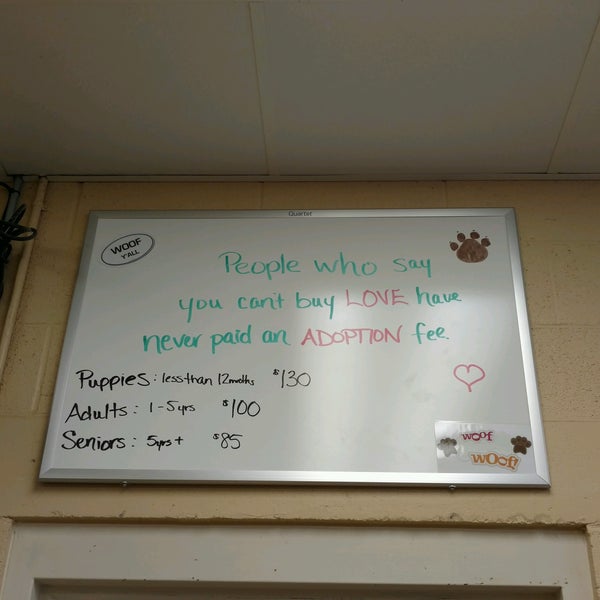 Quartet
WOOF
Y'ALL
People who say
you can't buy LOVE have
never paid an ADOPTION fee.
Puppies: less than 12 moths $130
Adults: 1-5 yrs $100
Seniors: 5yrs + $85
woof
woof!